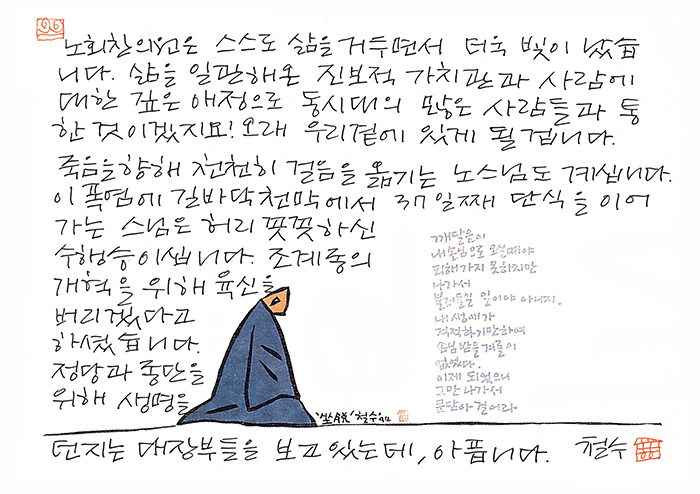 노회찬의원은 스스로 삶을 거두면서 더욱 빛이 났습
니다. 삶을 일관해온 진보적 가치관과 사람에
대한 깊은 애정으로 동시대의 많은 사람들과 통
한 것이겠지요! 오래 우리곁에 있게 될겁니다.
죽음을향해 천천히 걸음을 옮기는 노스님도 계십니다.
이 폭염에 길바닥천막에서 37일째 단식을 이어
가는 스님은 허리 꼿꼿하신
수행승이십니다. 조계종의
개혁을 위해 육신을
버리겠다고
하셨습니다.
정당과 종단을
위해 생명을
던지는 대장부들을 보고있는데, 아픕니다. 철수
깨달음이
내 손님으로 오실때야
피해가지 못하지만
나가서
불러들일 일이야 아니지.
내 생애가
적적하기만하여
손님 받을 겨를이
없었다.
이제 되었으니
그만 나가서
문닫아 걸어라.
'坐脫' 철수